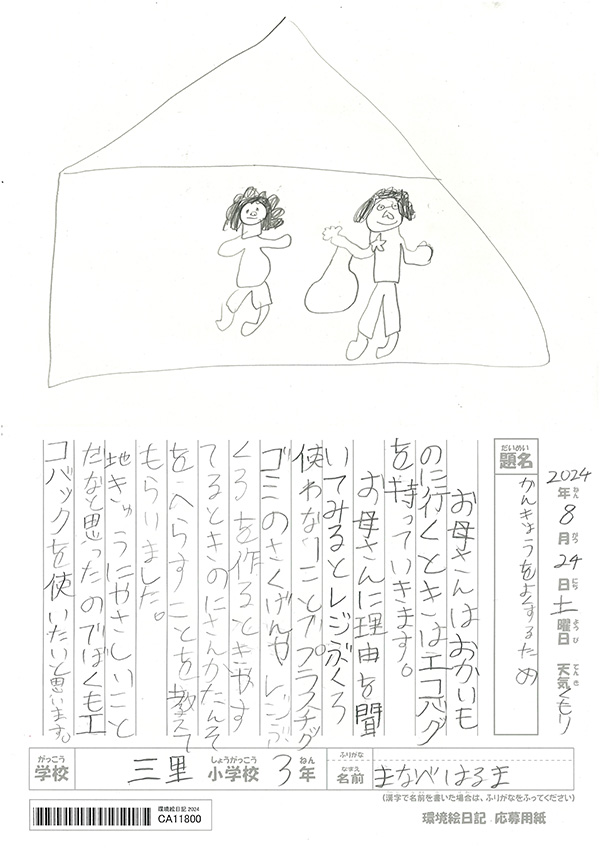 2024年8月24日土曜日 天気くもり
年ねん
月がつ
日にち
曜日ようび
天気てんき
だいめい
題名
かんきょうをよくするため
お母さんはおかいも
のに行くときはエコバッグ
を持っていきます。
お母さんに理由を聞
いてみるとレジぶくろ
使わないことでプラスチック
ゴミのさくげんやレジぶ
くろを作るときやす
てるときのにさんかたんそ
をへらすことを教えて
もらいました。
地きゅうにやさしいこと
だなと思ったのでぼくもエ
コバックを使いたいと思います。
がっこう
学校
三里
しょうがっこう
小学校
3
ねん
年
ふりがな
なまえ
名前
まなべはるま
(漢字で名前を書いた場合は、ふりがなをふってください)
環境絵日記 2024
CA11800
環境絵日記 応募用紙